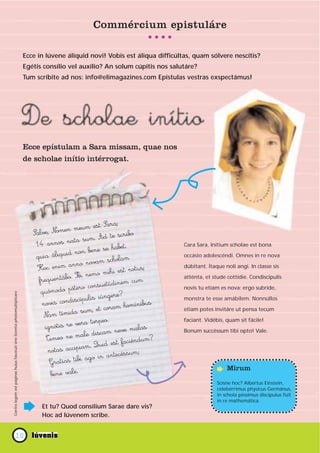 Commércium epistuláre
Ecce in Iúvene áliquid novi! Vobis est áliqua difficúltas, quam sólvere nescítis?
Egétis consílio vel auxílio? An solum cúpitis nos salutáre?
Tum scríbite ad nos: info@elimagazines.com Epístulas vestras exspectámus!
De scholae inítio
Ecce epístulam a Sara missam, quae nos
de scholae inítio intérrogat.
Salve, Nomen meum est Sara,
14 annos nata sum. Ad te scribo
quia áliquid non bene se habet.
Hoc enim anno novam scholam
frequentábo. Ibi nemo mihi est notus;
quómodo pótero consuetúdinem cum
novis condiscípulis iúngere?
Nam tímida sum, et coram homínibus
ignótis ne vera torqueo.
Tímeo ne male discam neve malas
notas accípiam. Quid est faciéndum?
Grátias tibi ago in antecéssum;
bene vale.
Cara Sara, Inítium scholae est bona
occásio adolescéndi. Omnes in re nova
dúbitant. Itaque noli angi. In classe sis
attenta, et stude cottídie. Condiscípulis
novis tu étiam es nova: ergo súbride,
monstra te esse amábilem. Nonnúllos
étiam potes invitáre ut pensa tecum
fáciant. Vidébis, quam sit fácile!
Bonum succéssum tibi opto! Vale.
Mirum
Scisne hoc? Albértus Einstein,
celebérrimus phýsicus Germánus,
in schola péssimus discípulus fuit
in re mathemática.
Et tu? Quod consílium Sarae dare vis?
Hoc ad Iúvenem scribe.
10 Iúvenis